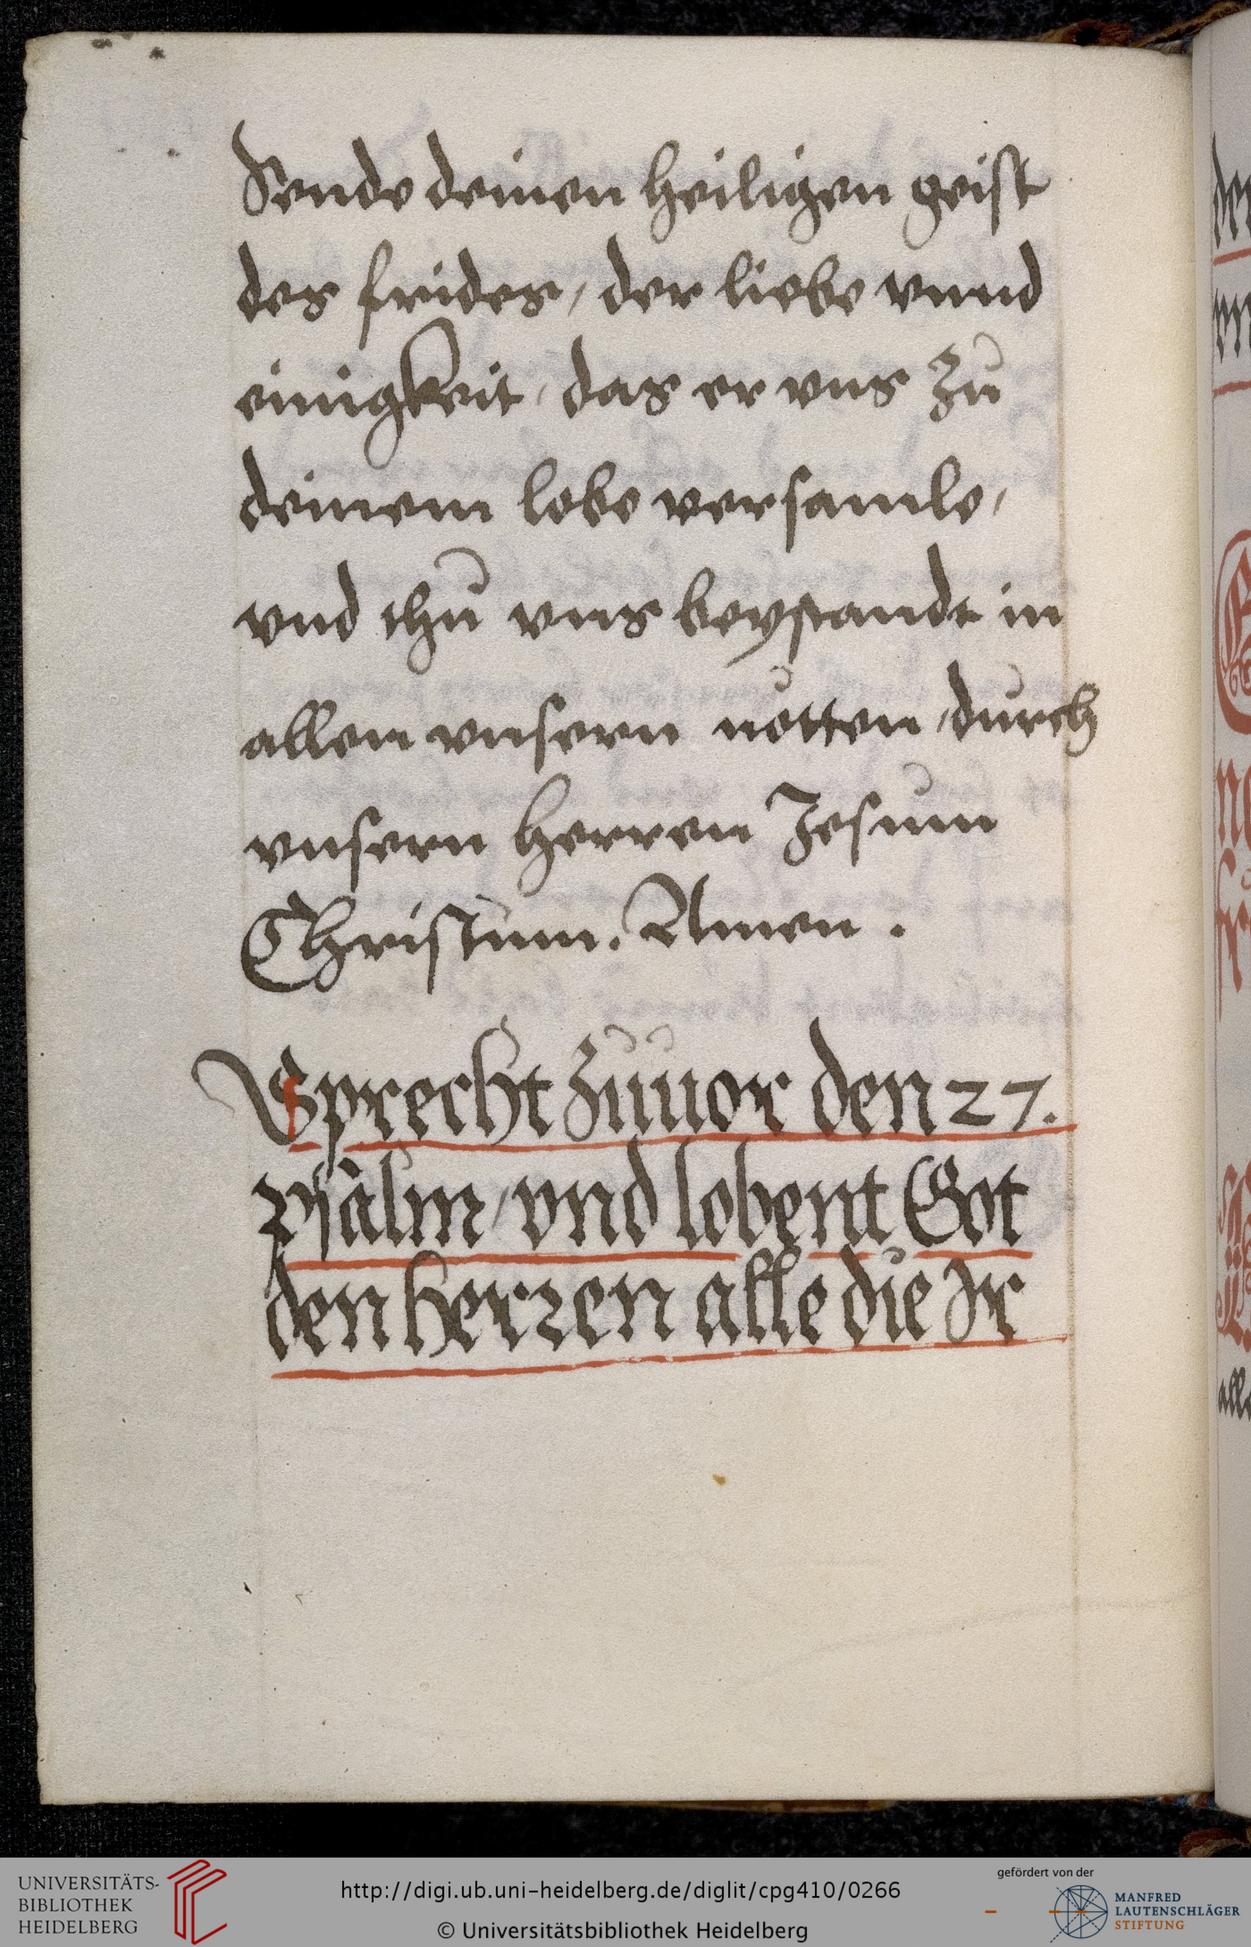 Sende deinen heiligen geist
des frides, der liebe vnnd
einigkeit, das er vns zů
deinem lobe versamle,
vnd thů vns beystandt in
allen vnsern nötten, durch
vnsern herren Jesum
Christum. Amen.
Sprecht zůuor den 27.
psalm, vnd lobent Got
den herren alle die Jr
UNIVERSITÄTS-
BIBLIOTHEK
HEIDELBERG
http://digi.ub.uni-heidelberg.de/diglit/cpg410/0266
© Universitätsbibliothek Heidelberg
gefördert von der
MANFRED
LAUTENSCHLÄGER
STIFTUNG